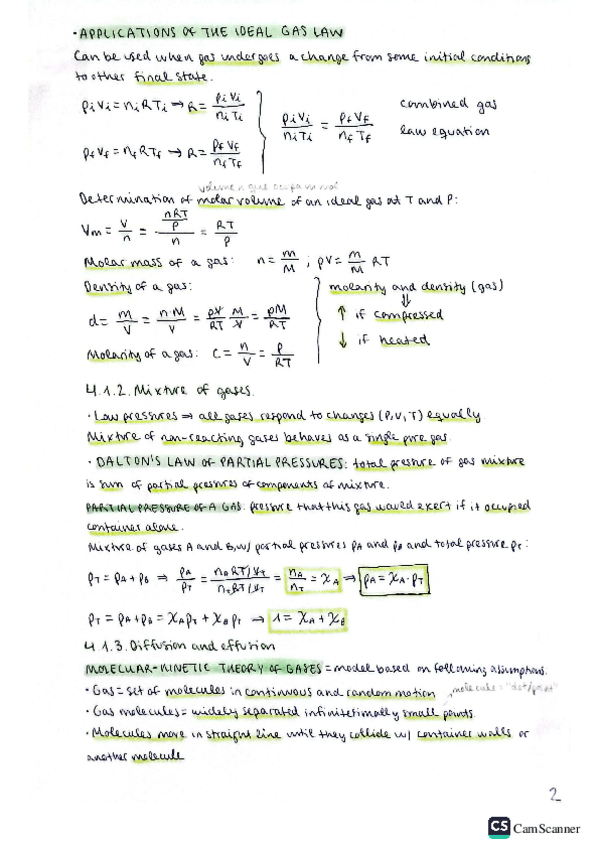 ·APPLICATIONS OF THE IDEAL GAS LAW
Can be used when gas undergoes a change from some initial conditions
to other final state.
piVi = niRTi → R = piVi / niTi
piVi / niTi = pfVf / nfTf
combined gas
law equation
pfVf = nfRTf → R = pfVf / nfTf
volume n gas occup
Determination of molar volume of an ideal gas at T and P:
Vm = V/n = (nRT/P)/n = RT/P
Molar mass of a gas: n = m/M ; pV = m/M RT
Density of a gas:
d = m/V = n·M/V = pV/RT M/V = pM/RT
Molarity of a gas: C = n/V = P/RT
molarity and density (gas)
⇓
↑ if compressed
↓ if heated
4.1.2. Mixture of gases.
·Low pressures ⇒ all gases respond to changes (P, V, T) equally
Mixture of non-reacting gases behaves as a single pure gas.
· DALTON'S LAW OF PARTIAL PRESSURES: total pressure of gas mixture
is sum of partial pressures of components of mixture.
PARTIAL PRESSURE OF A GAS: pressure that this gas would exert if it occupied
container alone.
Mixture of gases A and B, w/ partial pressures pA and pB and total pressure pT:
pT = pA + pB ⇒ pA/pT = (nA RT/VT)/(nT RT/VT) = nA/nT = χA ⇒ pA = χA · pT
pT = pA + pB = χA pT + χB pT → 1 = χA + χB
4.1.3. Diffusion and effusion
MOLECULAR-KINETIC THEORY OF GASES = model based on following assumptions:
· Gas = set of molecules in continuous and random motion , molecule = "dot/point"
· Gas molecules = widely separated infinitetimally small points.
· Molecules move in straight line until they collide w/ container walls or
another molecule
2
CS CamScanner